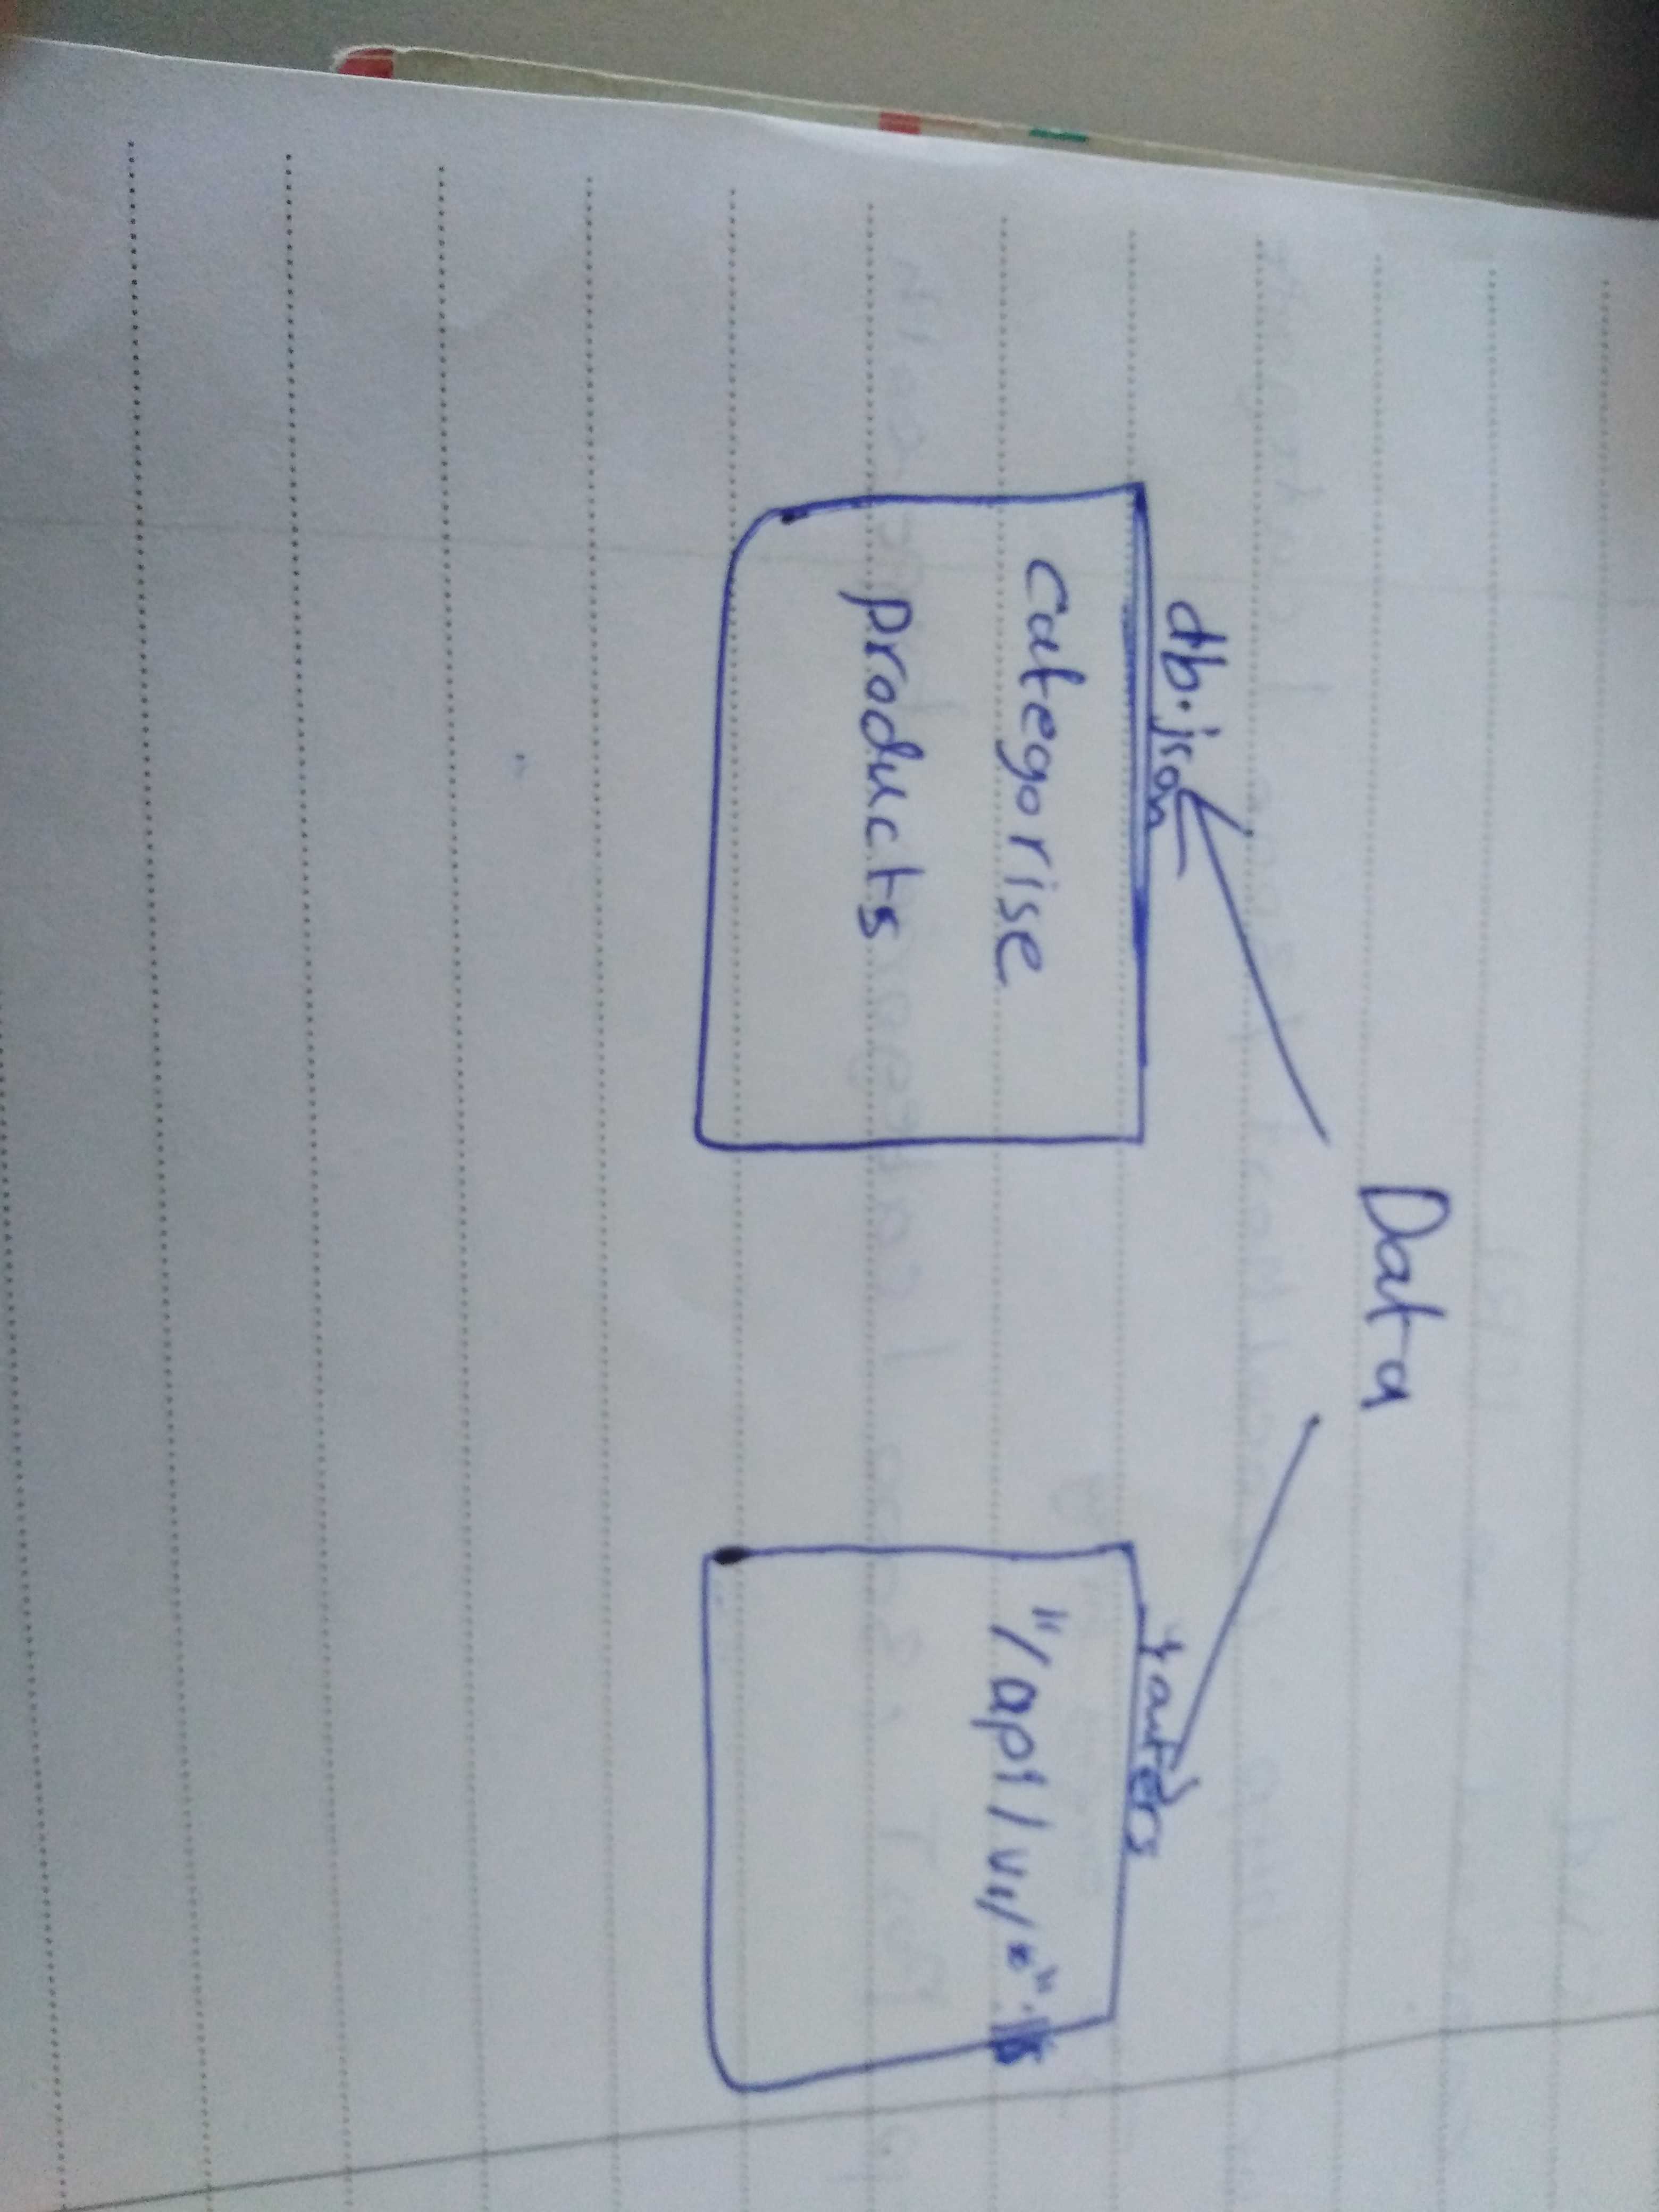 Data
db.json
categorise
products
"/api/v1/*"